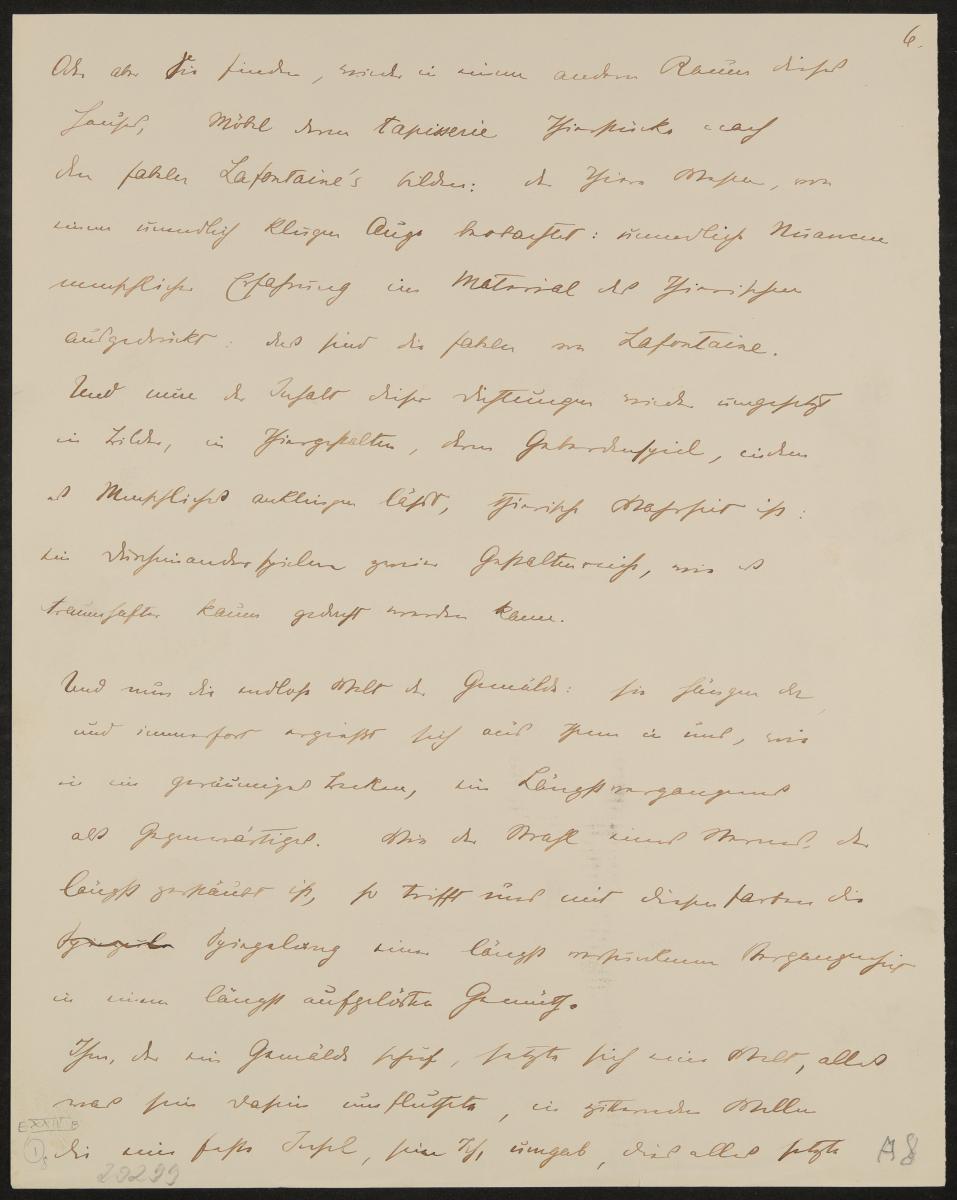 6.
Oder aber Sie finden, wieder in einem andern Raum dieses
Hauses, Möbel deren tapisserie Thierstücke nach
den fabeln Lafontaine's bilden: der Thiere Wesen, von
einem unendlich klugen Auge beobachtet: unendliche Nuancen
menschlicher Erfahrung im Material des Thierischen
ausgedrückt: das sind die fabeln von Lafontaine.
Und nun der Inhalt dieser Dichtungen wieder umgesetzt
in Bilder, in Thiergestalten, deren Geberdenspiel, indem
es Menschliches anklingen läßt, thierische Wahrheit ist:
ein Durcheinanderspielen zweier Gestaltenreiche, wie es
traumhafter kaum gedacht werden kann.
Und nun die endlose Welt der Gemälde: sie hängen da
und immerfort ergießt sich aus ihnen in uns, wie
in ein geräumiges Becken, ein Längstvergangenes
als Gegenwärtiges. Wie der Strahl eines Sternes, der
längst zerstäubt ist, so trifft uns mit diesen farben die
Spiegelung einer längst versunkenen Vergangenheit
in einem längst aufgelösten Gemüth.
Ihm, der ein Gemälde schuf, setzte sich eine Welt, alles
was sein Dasein umfluthete, in zitternden Wellen
die eine feste Insel, sein Ich, umgab, dies alles setzte
E XXIV B
1
8
A 8
29299